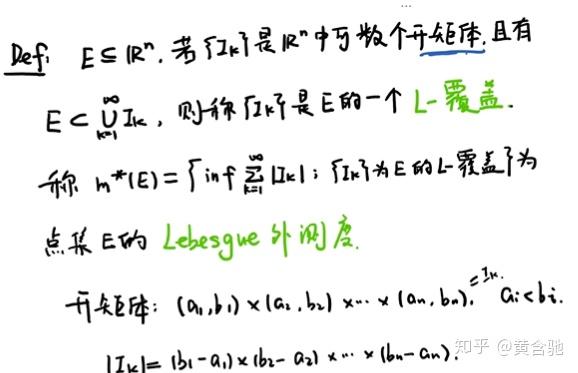 Def: E⊆ℝⁿ. 若{Iₖ}是ℝⁿ中可数个开矩体, 且有
E⊂⋃_{k=1}^{∞}Iₖ, 则称{Iₖ}是E的一个L-覆盖.
称 m*(E)={inf ∑_{k=1}^{∞}|Iₖ|; {Iₖ}为E的L-覆盖}为
点集E的 Lebesgue 外测度.
开矩体: (a₁,b₁)×(a₂,b₂)×⋯×(aₙ,bₙ). =Iₖ. aᵢ<bᵢ.
|Iₖ|=(b₁-a₁)×(b₂-a₂)×⋯×(bₙ-aₙ).
知乎 @黄含驰